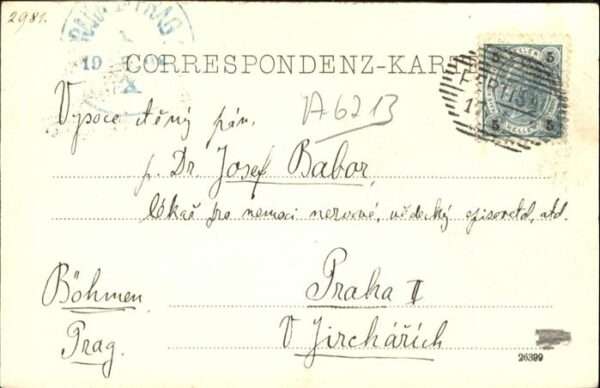 2981.
PRAG PRAHA
19
X
CORRESPONDENZ-KARTE
5 HELLER 5
17
5 HELLER 5
A6213
Vysoce ctěný pán.
p. Dr. Josef Babor,
lékař pro nemoci nervové, vědecký spisovatel, atd.
Böhmen.
Praha II
Prag.
V Jirchářích
26399